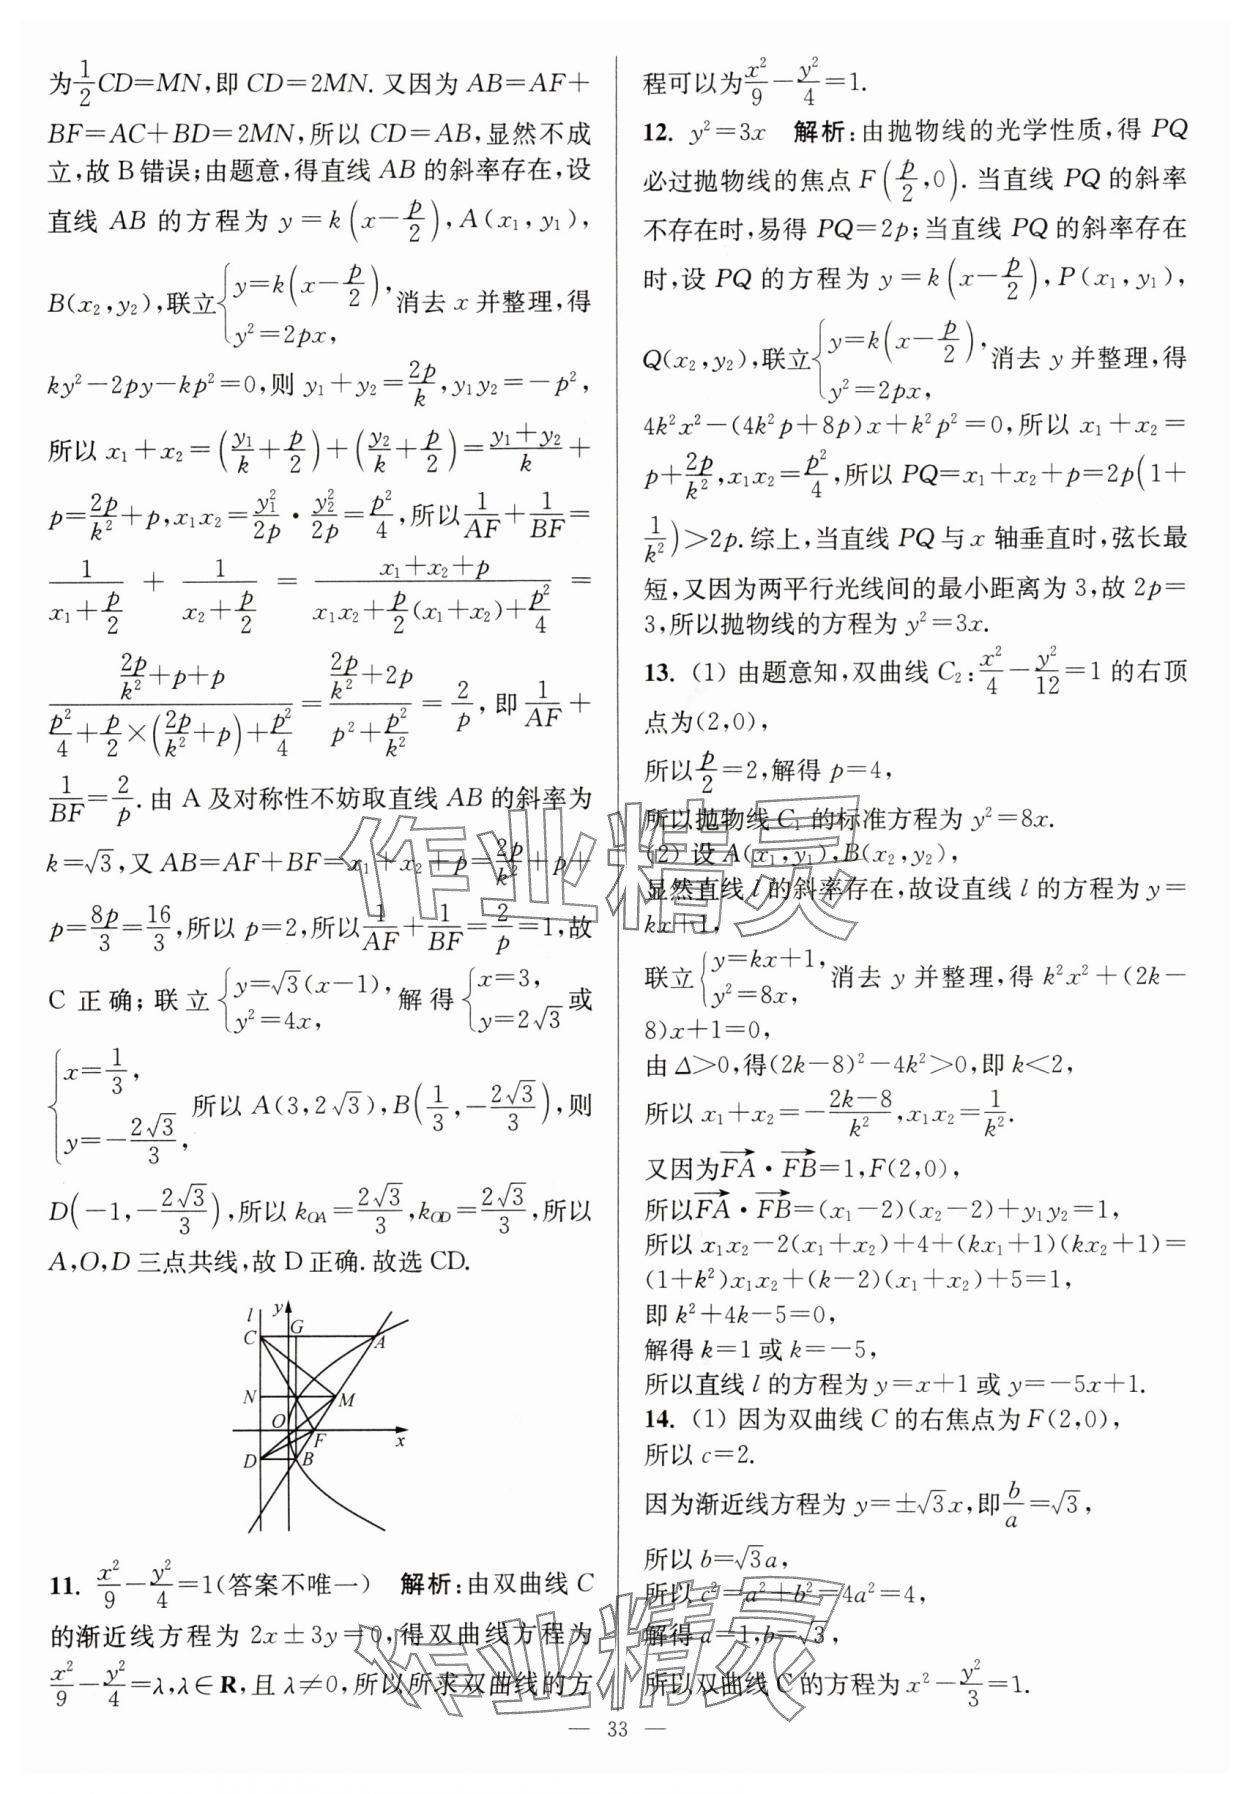 为$\frac{1}{2}$CD=MN,即 CD=2MN. 又因为 AB=AF+
BF=AC+BD=2MN,所以 CD=AB,显然不成
立,故 B 错误;由题意,得直线 AB 的斜率存在,设
直线 AB 的方程为 $y=k\left(x-\frac{p}{2}\right)$,A($x_1$,$y_1$),
B($x_2$,$y_2$),联立$\begin{cases}y=k\left(x-\frac{p}{2}\right),\\y^2=2px,\end{cases}$消去 x 并整理,得
$ky^2-2py-kp^2=0$,则 $y_1+y_2=\frac{2p}{k}$,$y_1y_2=-p^2$,
所以 $x_1+x_2=\left(\frac{y_1}{k}+\frac{p}{2}\right)+\left(\frac{y_2}{k}+\frac{p}{2}\right)=\frac{y_1+y_2}{k}+$
$p=\frac{2p}{k^2}+p$,$x_1x_2=\frac{y_1^2}{2p}\cdot\frac{y_2^2}{2p}=\frac{p^2}{4}$,所以$\frac{1}{AF}+\frac{1}{BF}=$
$\frac{1}{x_1+\frac{p}{2}}+\frac{1}{x_2+\frac{p}{2}}=\frac{x_1+x_2+p}{x_1x_2+\frac{p}{2}(x_1+x_2)+\frac{p^2}{4}}=$
$\frac{\frac{2p}{k^2}+p+p}{\frac{p^2}{4}+\frac{p}{2}\times\left(\frac{2p}{k^2}+p\right)+\frac{p^2}{4}}=\frac{\frac{2p}{k^2}+2p}{p^2+\frac{p^2}{k^2}}=\frac{2}{p}$,即$\frac{1}{AF}+$
$\frac{1}{BF}=\frac{2}{p}$.由 A 及对称性不妨取直线 AB 的斜率为
$k=\sqrt{3}$,又 AB=AF+BF=$x_1+x_2+p=\frac{2p}{k^2}+p+$
$p=\frac{8p}{3}=\frac{16}{3}$,所以 p=2,所以$\frac{1}{AF}+\frac{1}{BF}=\frac{2}{p}=1$,故
C 正确;联立$\begin{cases}y=\sqrt{3}(x-1),\\y^2=4x,\end{cases}$解得$\begin{cases}x=3,\\y=2\sqrt{3}\end{cases}$或
$\begin{cases}x=\frac{1}{3},\\y=-\frac{2\sqrt{3}}{3},\end{cases}$所以 A(3,2$\sqrt{3}$),B$\left(\frac{1}{3},-\frac{2\sqrt{3}}{3}\right)$,则
D$\left(-1,-\frac{2\sqrt{3}}{3}\right)$,所以 $k_{OA}=\frac{2\sqrt{3}}{3}$,$k_{OD}=\frac{2\sqrt{3}}{3}$,所以
A,O,D 三点共线,故 D 正确.故选 CD.
l y
C G A
N M
O
F x
D B
11. $\frac{x^2}{9}-\frac{y^2}{4}=1$(答案不唯一) 解析:由双曲线 C
的渐近线方程为 2x±3y=0,得双曲线方程为
$\frac{x^2}{9}-\frac{y^2}{4}=\lambda$,λ∈R,且 λ≠0,所以所求双曲线的方
程可以为$\frac{x^2}{9}-\frac{y^2}{4}=1$.
12. $y^2=3x$ 解析:由抛物线的光学性质,得 PQ
必过抛物线的焦点 F$\left(\frac{p}{2},0\right)$. 当直线 PQ 的斜率
不存在时,易得 PQ=2p;当直线 PQ 的斜率存在
时,设 PQ 的方程为 $y=k\left(x-\frac{p}{2}\right)$,P($x_1$,$y_1$),
Q($x_2$,$y_2$),联立$\begin{cases}y=k\left(x-\frac{p}{2}\right),\\y^2=2px,\end{cases}$消去 y 并整理,得
$4k^2x^2-(4k^2p+8p)x+k^2p^2=0$,所以 $x_1+x_2=$
$p+\frac{2p}{k^2}$,$x_1x_2=\frac{p^2}{4}$,所以 PQ=$x_1+x_2+p=2p\Big(1+$
$\frac{1}{k^2}\Big)>2p$.综上,当直线 PQ 与 x 轴垂直时,弦长最
短,又因为两平行光线间的最小距离为 3,故 2p=
3,所以抛物线的方程为 $y^2=3x$.
13. (1) 由题意知,双曲线 $C_2$:$\frac{x^2}{4}-\frac{y^2}{12}=1$ 的右顶
点为(2,0),
所以$\frac{p}{2}=2$,解得 p=4,
所以抛物线 $C_1$ 的标准方程为 $y^2=8x$.
(2) 设 A($x_1$,$y_1$),B($x_2$,$y_2$),
显然直线 l 的斜率存在,故设直线 l 的方程为 y=
kx+1,
联立$\begin{cases}y=kx+1,\\y^2=8x,\end{cases}$消去 y 并整理,得 $k^2x^2+(2k-$
8)x+1=0,
由 Δ>0,得$(2k-8)^2-4k^2>0$,即 k<2,
所以 $x_1+x_2=-\frac{2k-8}{k^2}$,$x_1x_2=\frac{1}{k^2}$.
又因为$\overrightarrow{FA}\cdot\overrightarrow{FB}=1$,F(2,0),
所以$\overrightarrow{FA}\cdot\overrightarrow{FB}=(x_1-2)(x_2-2)+y_1y_2=1$,
所以 $x_1x_2-2(x_1+x_2)+4+(kx_1+1)(kx_2+1)=$
$(1+k^2)x_1x_2+(k-2)(x_1+x_2)+5=1$,
即 $k^2+4k-5=0$,
解得 k=1 或 k=-5,
所以直线 l 的方程为 y=x+1 或 y=-5x+1.
14. (1) 因为双曲线 C 的右焦点为 F(2,0),
所以 c=2.
因为渐近线方程为 $y=\pm\sqrt{3}x$,即$\frac{b}{a}=\sqrt{3}$,
所以 $b=\sqrt{3}a$,
所以 $c^2=a^2+b^2=4a^2=4$,
解得 a=1,$b=\sqrt{3}$,
所以双曲线 C 的方程为 $x^2-\frac{y^2}{3}=1$.
— 33 —
作业精灵
作业精灵